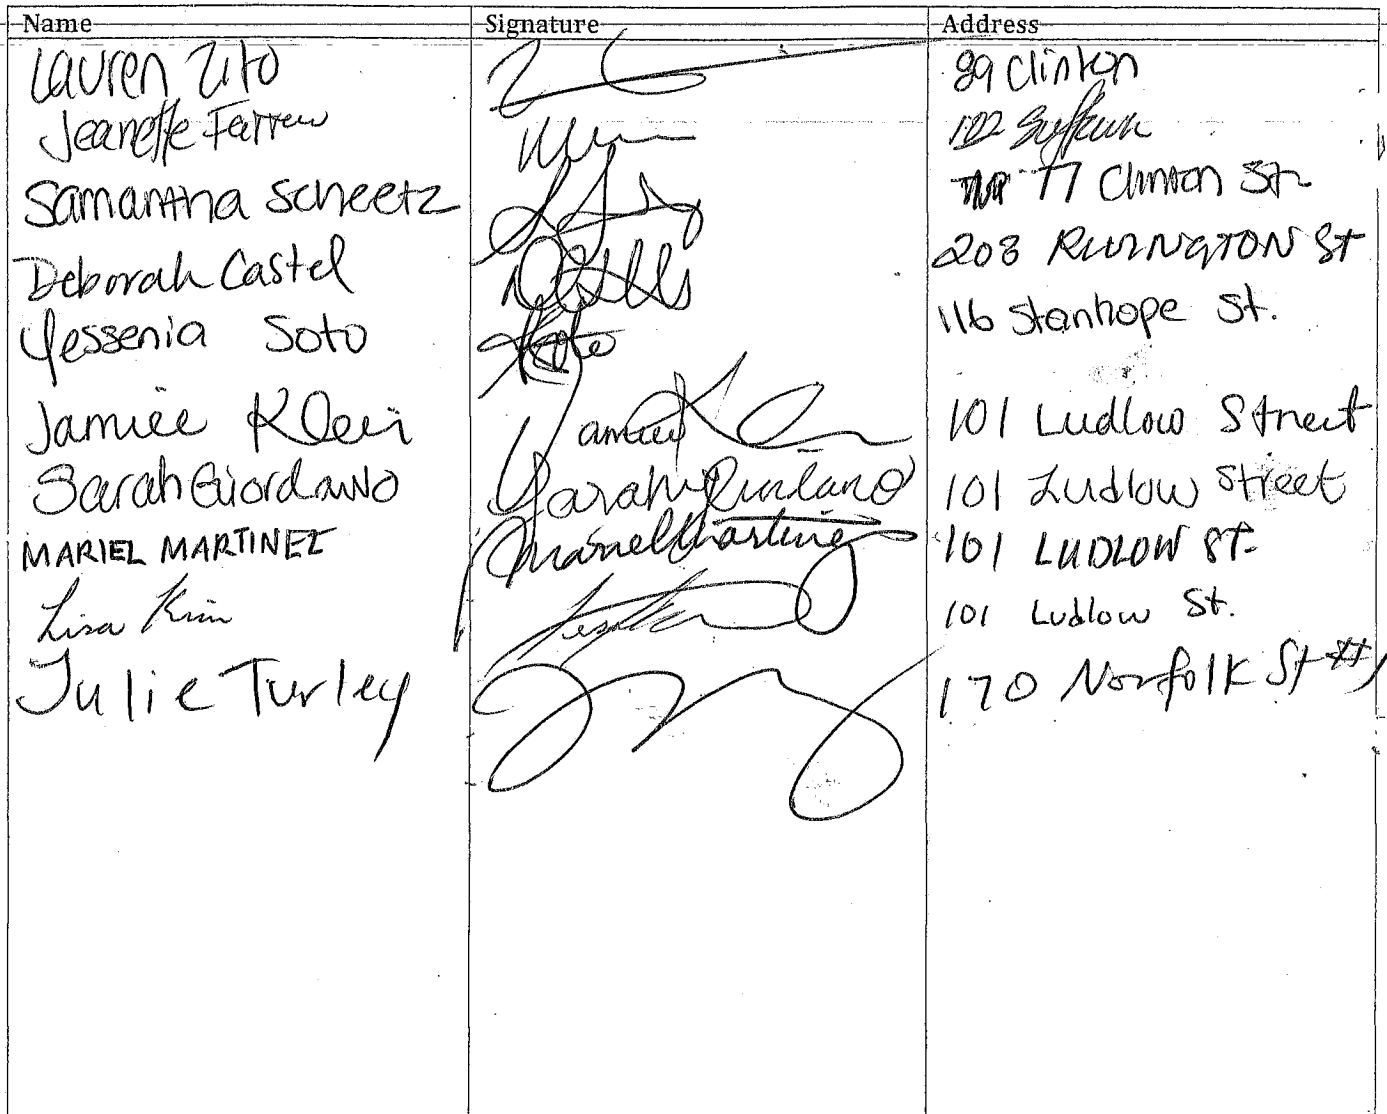 Name Signature Address
Lauren Zito 89 Clinton
Jeanette 122 Suffolk
Samantha Scheetz 77 Clinton St.
Deborah Castel 203 RIVINGTON St
Yessenia Soto 116 Stanhope St.
Jamiee Klein Jamiee K 101 Ludlow Street
Sarah Giordano Sarah Giordano 101 Ludlow Street
MARIEL MARTINEZ Mariel Martinez 101 LUDLOW ST.
Lisa Kim 101 Ludlow St.
Julie Turley 170 Norfolk St #